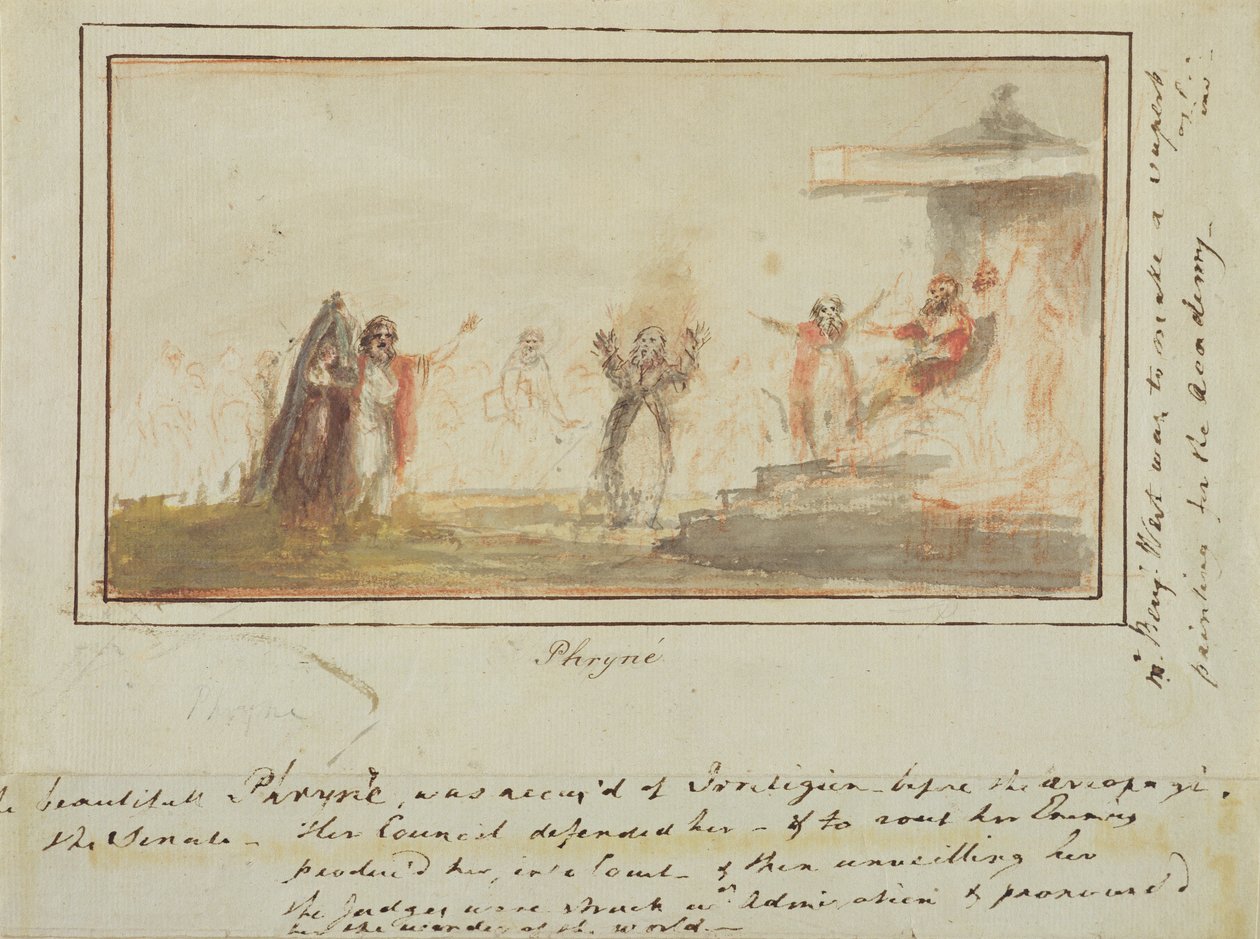 Phryné
Phryne
beautifull Phryné, was accus'd of Irreligion before the areopagi
the Senate - Her Council defended her - & to rout her Enemies
produc'd her, into Court - & then unveilling her
the Judges were struck wth Admiration & pronounc'd
her the wonder of the world -
Mr. Benj. West was to make a
painting for the Academy -